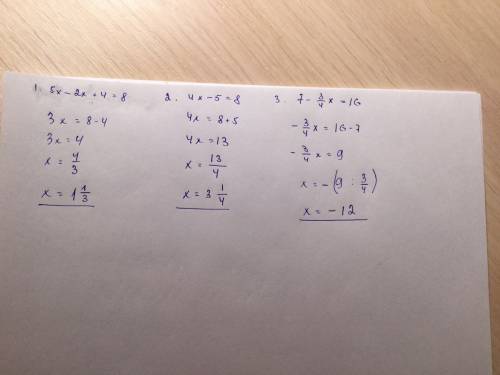 1. 5x-2x+4=8
3x = 8-4
3x = 4
x = 4/3
x = 1 1/3
2. 4x-5=8
4x = 8+5
4x = 13
x = 13/4
x = 3 1/4
3. 7- 3/4 x = 16
- 3/4 x = 16-7
- 3/4 x = 9
x = -(9 : 3/4)
x = -12